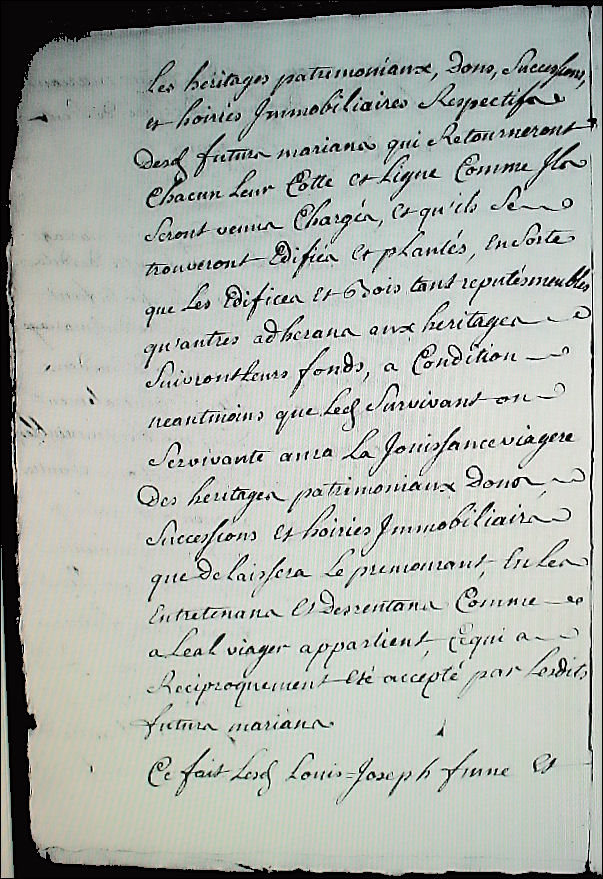 les heritages patrimoniaux, dons, Successions,
et hoiries Immobiliaires Respectifs
desd futurs marians qui Retourneront
Chacun Leur Cotte et Ligne Comme Ils
seront venus Chargés, et qu'ils Se
trouveront Edifies et plantés, En Sorte
que Les Edifices Et Bois tant reputés meubles
qu'autres adherans aux heritages
Suivront Leurs fonds, a Condition
neantmoins que Led Survivant ou
Servivante aura La Jouissance viagere
Des heritages patrimoniaux Dons,
Successions Et hoiries Immobiliairs
que Delaissera Le premourant, En Les
Entretenans Et Desrentans Comme
a Leal viager appartient, Cequi a
Reciproquement Eté accepté par Lesdits
futurs marians
Ce fait Lesd Louis=Joseph Et